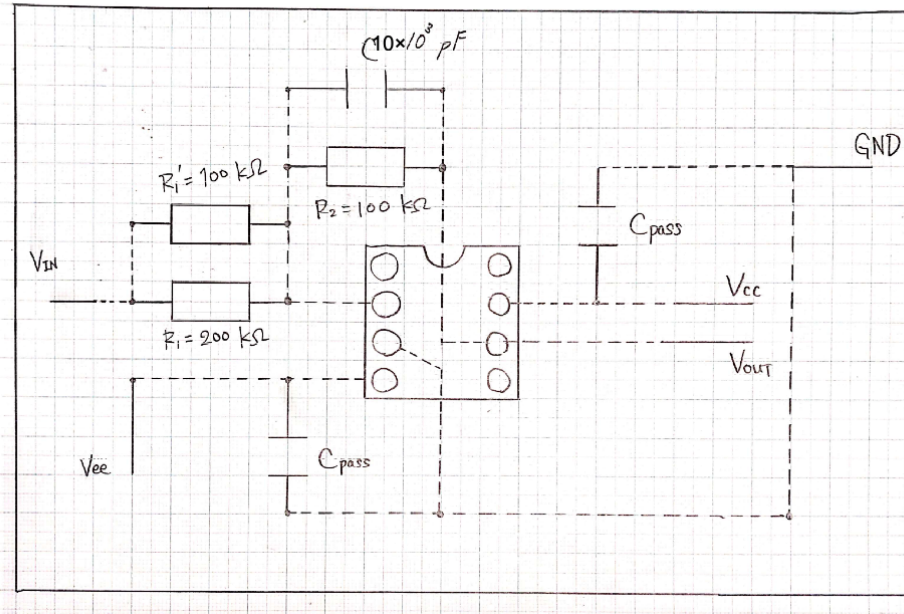 C 10×10³ pF
GND
R₁'= 100 kΩ
R₂ = 100 kΩ
Cpass
VIN
Vcc
R₁ = 200 kΩ
VOUT
Vee
Cpass